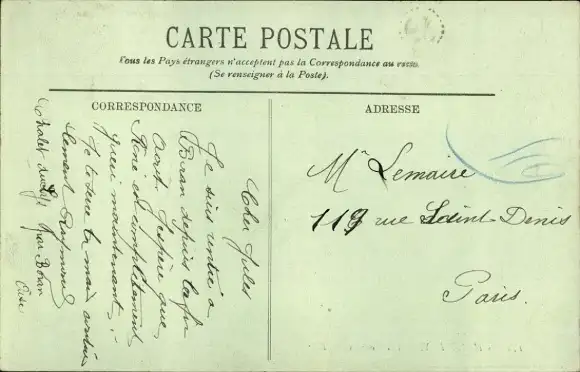 CARTE POSTALE
Tous les Pays étrangers n'acceptent pas la Correspondance au recto
(Se renseigner à la Poste).
CORRESPONDANCE
Cher Jules
Je suis rentré à
Boran depuis la fin
Août J'espère que
René est complètement
guéri maintenant.
Je te serre la main
Raymond
Chalet par Boran
Oise
ADRESSE
Mr Lemaire
117 rue Saint-Denis
Paris.